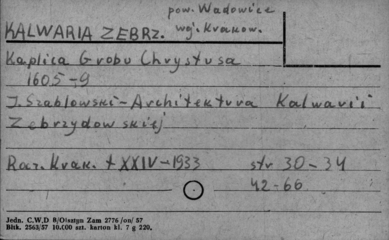 pow. Wadowice
KALWARIA ZEBRZ. woj. Krakow.
Kaplica Grobu Chrystusa
1605-9
J. Szablowski - Architektura Kalwarii
Zebrzydowskiej
Roz. Krak. t XXIV - 1933 str 30-34
42-66
Jedn. C.W.D 8/Olsztyn Zam 2776/on/57
Bitk. 2563/57 10.000 szt. karton kl. 7 g 220.